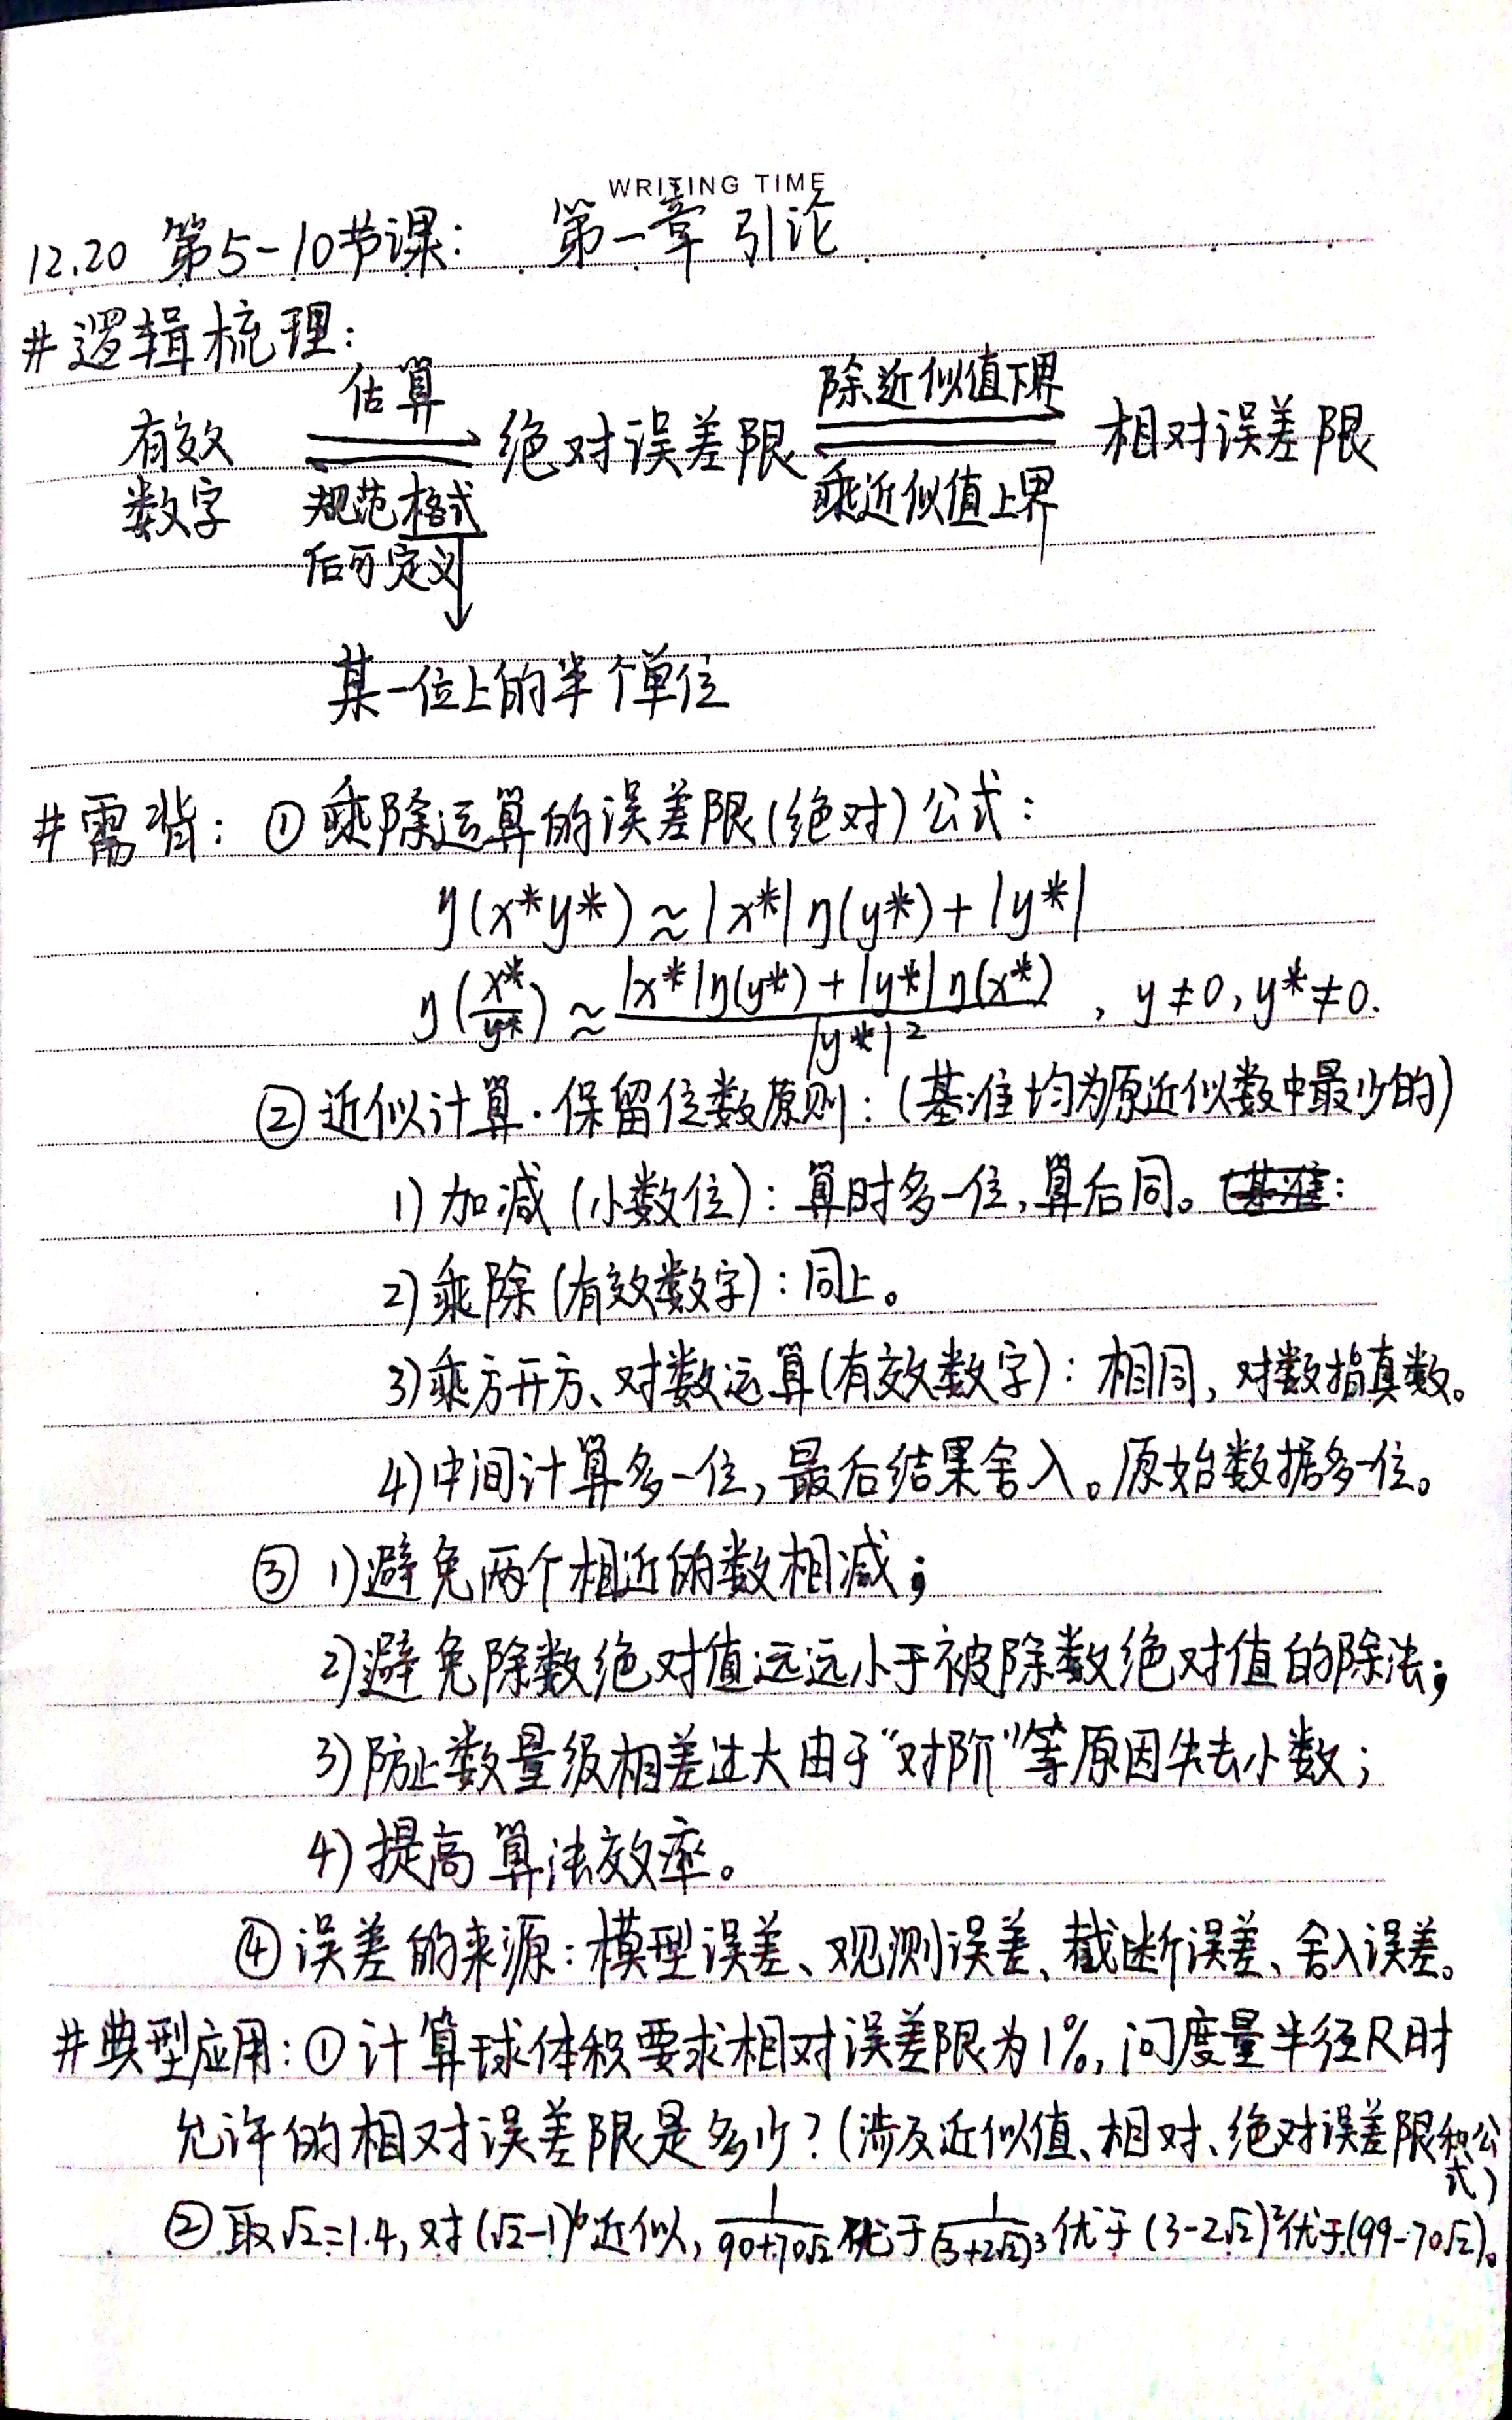 WRITING TIME
12.20 第5-10节课: 第一章 引论
#逻辑梳理:
估算 除近似值下界
有效 绝对误差限 相对误差限
数字 规范格式 乘近似值上界
后可定义
某一位上的半个单位
#需背: ①乘除运算的误差限(绝对)公式:
η(x*y*)≈|x*|η(y*)+|y*|
η(x*/y*)≈(|x*|η(y*)+|y*|η(x*))/|y*|², y≠0, y*≠0.
②近似计算·保留位数原则:(基准均为原近似数中最少的)
1)加减(小数位):算时多一位,算后同。(基准:
2)乘除(有效数字):同上。
3)乘方开方、对数运算(有效数字):相同,对数指真数。
4)中间计算多一位,最后结果舍入。原始数据多一位。
③ 1)避免两个相近的数相减;
2)避免除数绝对值远远小于被除数绝对值的除法;
3)防止数量级相差过大由于“对阶”等原因失去小数;
4)提高算法效率。
④误差的来源:模型误差、观测误差、截断误差、舍入误差。
#典型应用:①计算球体积要求相对误差限为1%,问度量半径R时
允许的相对误差限是多少?(涉及近似值、相对、绝对误差限和公式)
②取√2=1.4,对(√2-1)⁶近似, 1/(90+70√2) 优于 1/(3+2√2)³ 优于 (3-2√2)³优于(99-70√2)。